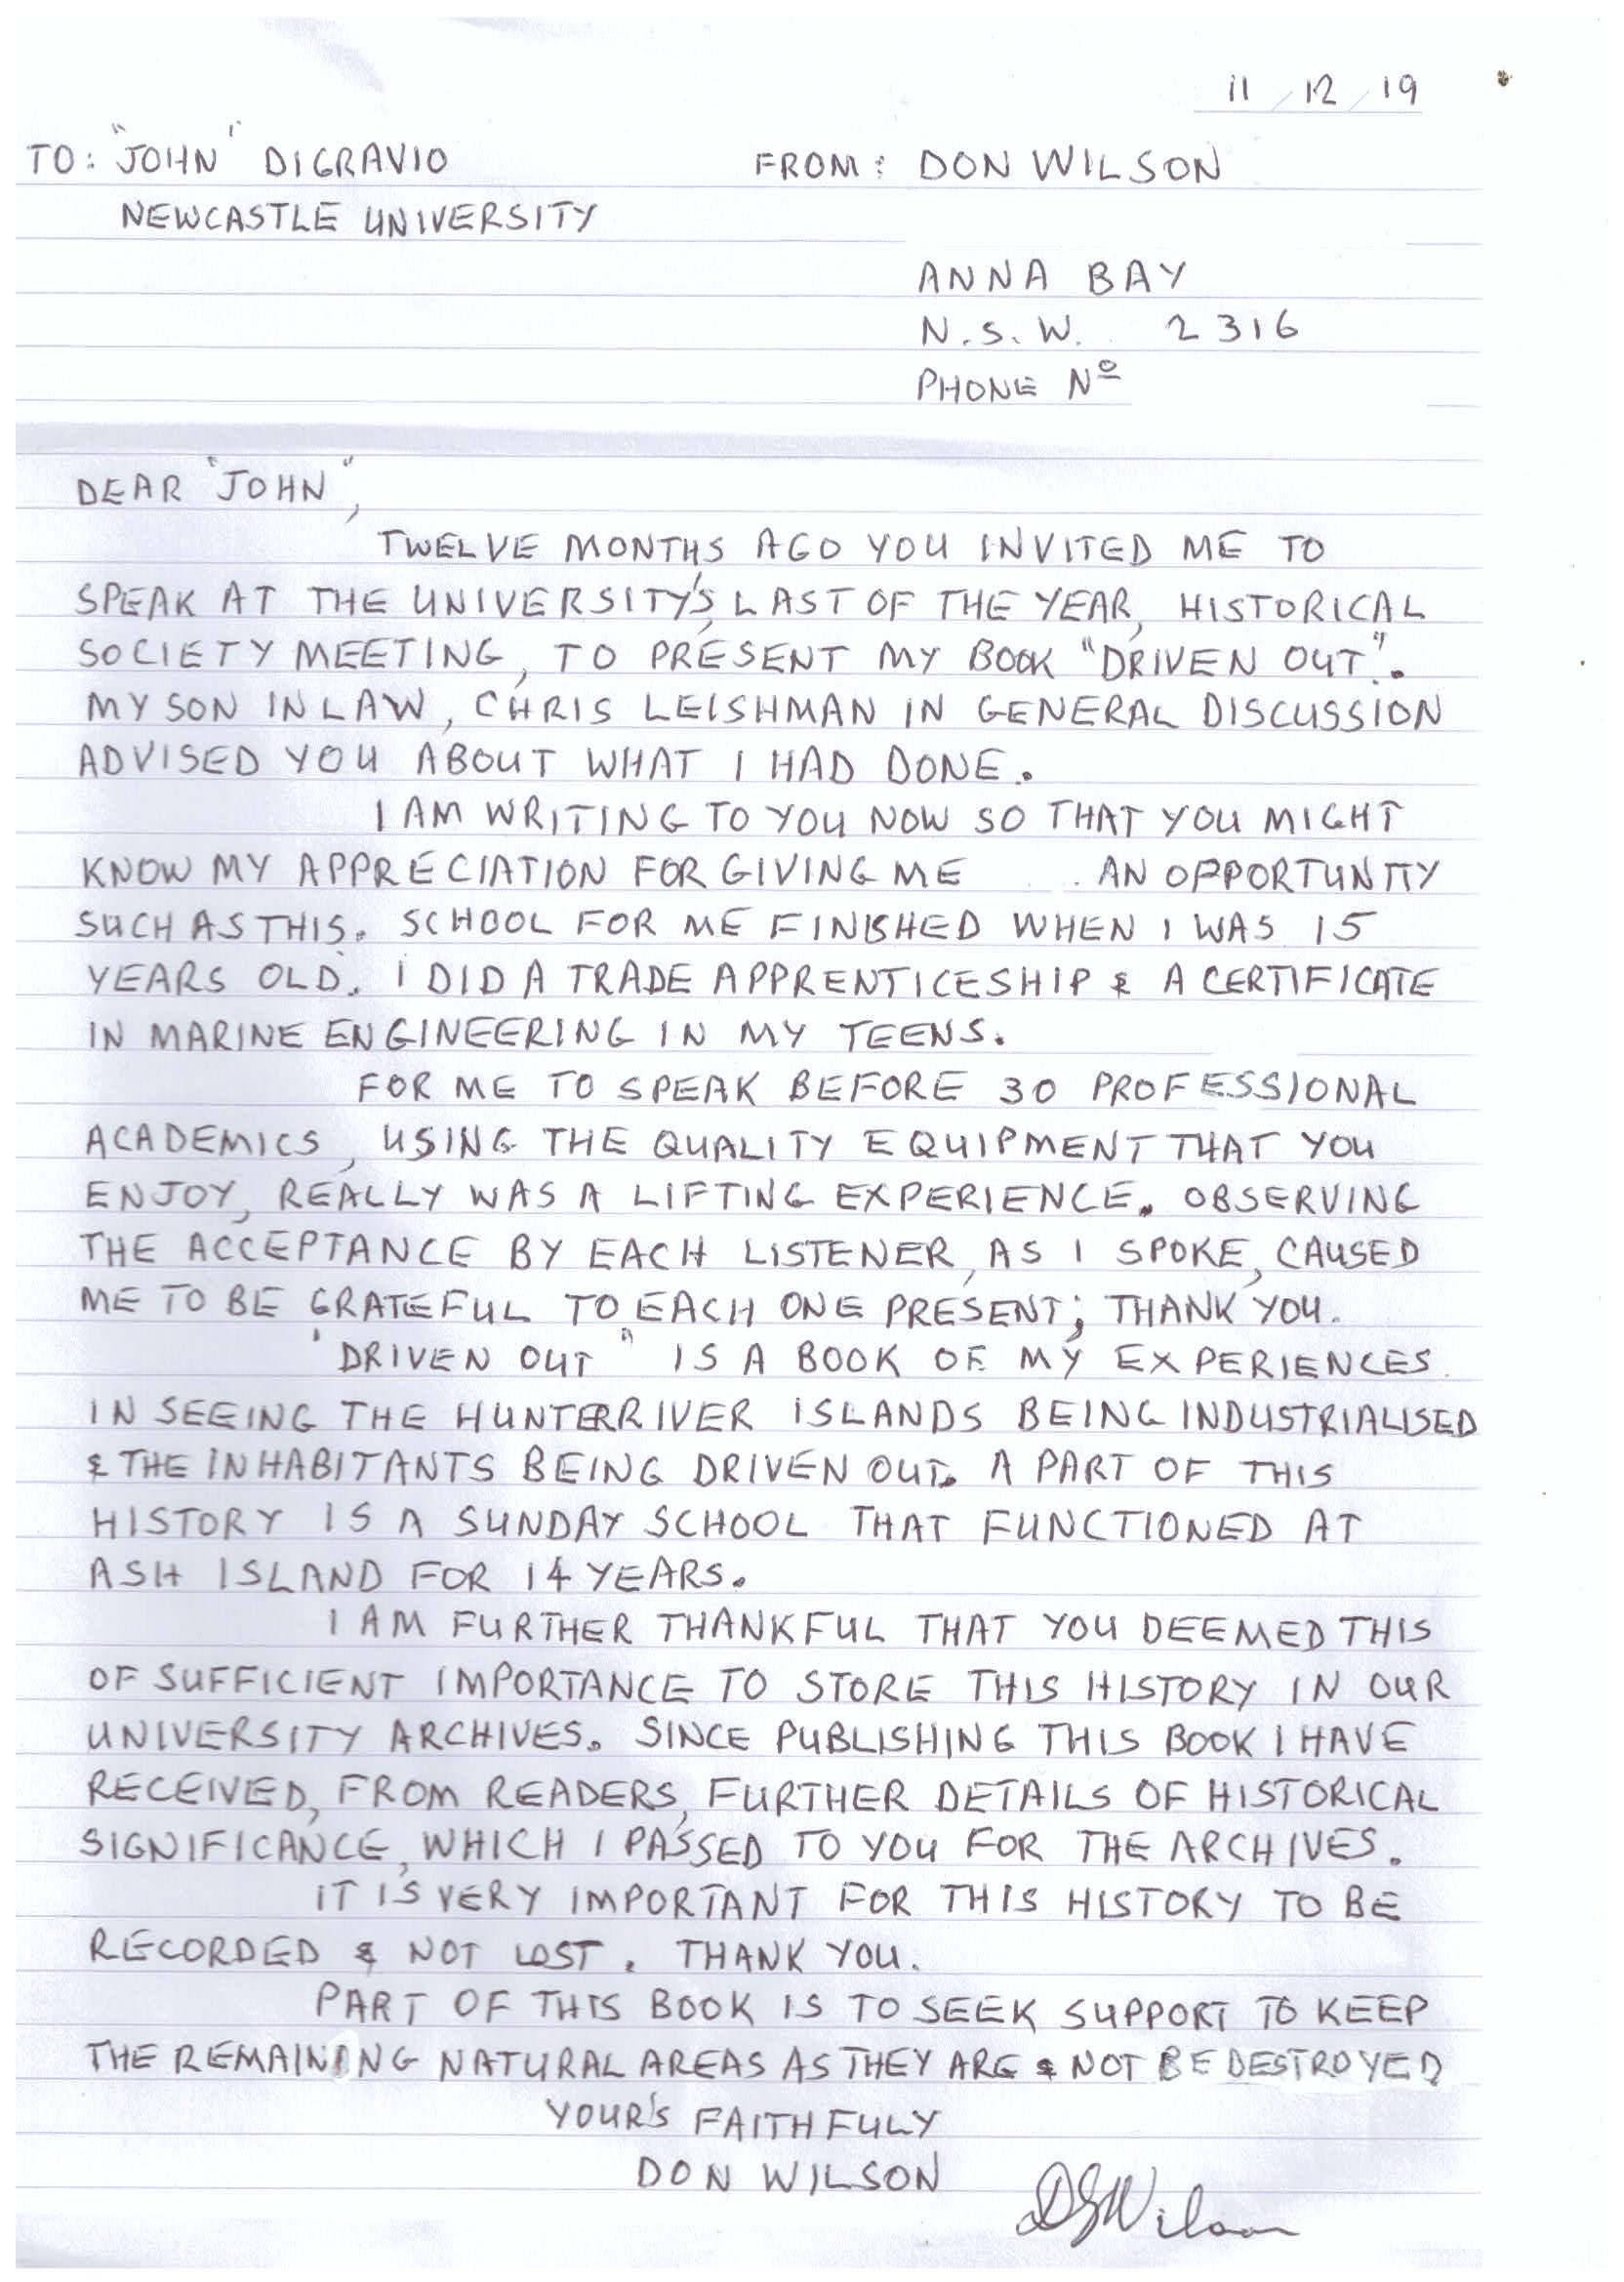 11 / 12 / 19
TO: "JOHN" DIGRAVIO FROM: DON WILSON
NEWCASTLE UNIVERSITY
ANNA BAY
N.S.W. 2316
PHONE Nº
DEAR "JOHN",
TWELVE MONTHS AGO YOU INVITED ME TO
SPEAK AT THE UNIVERSITY'S, LAST OF THE YEAR, HISTORICAL
SOCIETY MEETING, TO PRESENT MY BOOK "DRIVEN OUT".
MY SON IN LAW, CHRIS LEISHMAN IN GENERAL DISCUSSION
ADVISED YOU ABOUT WHAT I HAD DONE.
I AM WRITING TO YOU NOW SO THAT YOU MIGHT
KNOW MY APPRECIATION FOR GIVING ME AN OPPORTUNITY
SUCH AS THIS. SCHOOL FOR ME FINISHED WHEN I WAS 15
YEARS OLD. I DID A TRADE APPRENTICESHIP & A CERTIFICATE
IN MARINE ENGINEERING IN MY TEENS.
FOR ME TO SPEAK BEFORE 30 PROFESSIONAL
ACADEMICS, USING THE QUALITY EQUIPMENT THAT YOU
ENJOY, REALLY WAS A LIFTING EXPERIENCE. OBSERVING
THE ACCEPTANCE BY EACH LISTENER, AS I SPOKE, CAUSED
ME TO BE GRATEFUL TO EACH ONE PRESENT; THANK YOU.
"DRIVEN OUT" IS A BOOK OF MY EXPERIENCES
IN SEEING THE HUNTER RIVER ISLANDS BEING INDUSTRIALISED
& THE INHABITANTS BEING DRIVEN OUT. A PART OF THIS
HISTORY IS A SUNDAY SCHOOL THAT FUNCTIONED AT
ASH ISLAND FOR 14 YEARS.
I AM FURTHER THANKFUL THAT YOU DEEMED THIS
OF SUFFICIENT IMPORTANCE TO STORE THIS HISTORY IN OUR
UNIVERSITY ARCHIVES. SINCE PUBLISHING THIS BOOK I HAVE
RECEIVED, FROM READERS, FURTHER DETAILS OF HISTORICAL
SIGNIFICANCE, WHICH I PASSED TO YOU FOR THE ARCHIVES.
IT IS VERY IMPORTANT FOR THIS HISTORY TO BE
RECORDED & NOT LOST. THANK YOU.
PART OF THIS BOOK IS TO SEEK SUPPORT TO KEEP
THE REMAINING NATURAL AREAS AS THEY ARE & NOT BE DESTROYED
YOUR'S FAITHFULY
DON WILSON
DGWilson